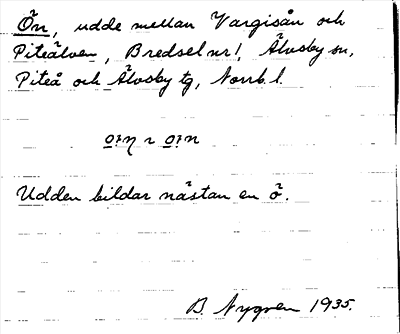 Ön, udde mellan Vargisån och
Piteälven, Bredsel nr 1, Älvsby sn,
Piteå och Älvsby tg, Norrb. l.
Udden bildar nästan en ö.
B. Nygren 1935.